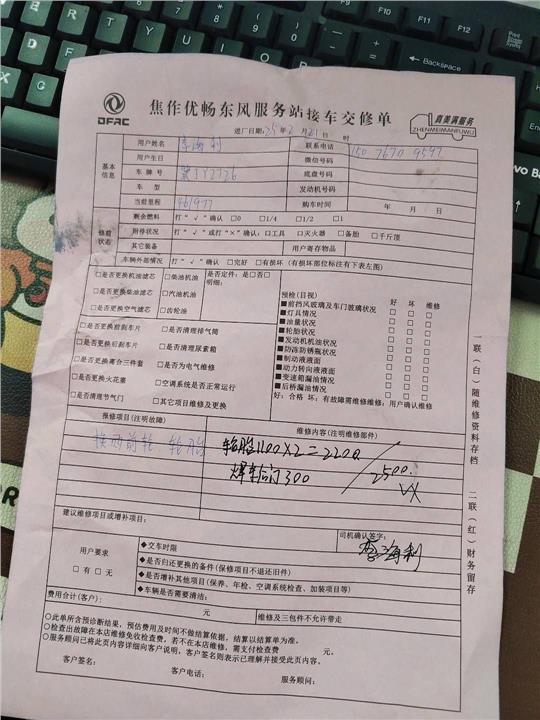 DFAC
焦作优畅东风服务站接车交修单
真美满服务
ZHENMEIMANFUWU
进厂日期:25年2月21日 时
基本信息
用户姓名 李海利 联系电话 150 7670 9597
用户生日 微信号码
车牌号 冀JY2726 底盘号码
车型 发动机号码
当前里程 461977 购车时间 年 月 日
修前状态
剩余燃料 打“√”确认 □0 □1/4 □1/2 □1
附带状况 打“√”或打“×”确认:□工具 □灭火器 □备胎 □千斤顶
其它装备 用户寄存物品
车辆外部情况 打“√”确认 □完好 □有损坏(有损坏部位标注有下表左图)
□是否更换机油滤芯 □柴油机油
□是否更换柴油滤芯 □汽油机油
□是否更换空气滤芯 □齿轮油
是否定件:是□否□
明细:
□是否更换前刹车片 □是否清理排气筒
□是否更换后刹车片 □是否清理尿素箱
□是否更换离合三件套 □是否为电气维修
□是否更换火花塞 □空调系统是否正常运行
□是否清理节气门 □其它项目维修及更换
预检(目视) 好 坏 维修
■前挡风玻璃及车门玻璃状况 □ □ □
■灯具情况 □ □ □
■油量状况 □ □ □
■轮胎状况 □ □ □
■发动机机油状况 □ □ □
■防冻防锈瓶状况 □ □ □
■制动液液面 □ □ □
■动力转向液液面 □ □ □
■变速箱漏油情况 □ □ □
■后桥漏油情况 □ □ □
好:合格 坏:有故障需维修维修:用户确认维修
报修项目(注明故障) 维修内容(注明维修部件)
换两前轮 轮胎 轮胎1100×2=2200
焊车后门300
2500.
建议维修项目或增补项目:
司机确认签字:
李海利
用户要求
□有 □无
◆交车时限
◆是否归还更换的备件(保修项目不退还旧件)
◆是否增补其他项目(保养、年检、空调系统检查、加装项目等)
◆车辆是否需要清洁:
费用合计(客户): 元 维修及三包件不允许带走
○此单所含预诊断结果,预估费用及时间不做结算依据,结算以结算单为准。
○检查出故障在本店维修免收检查费,若不在本店维修,需支付检查费 元。
○服务顾问已将此页内容详细向客户说明,客户签名则表示已理解并接受此页内容。
客户签名: 客户电话: 服务顾问:
一联(白)随维修资料存档
二联(红)财务留存